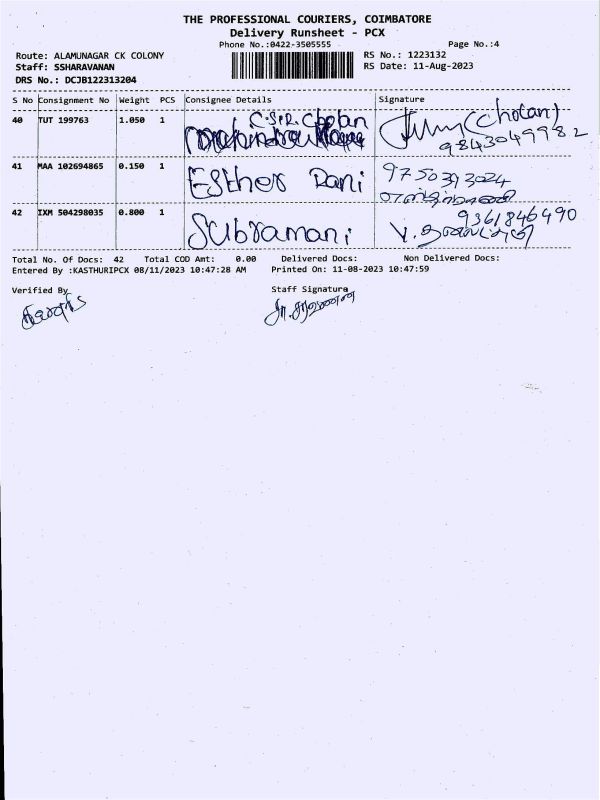 THE PROFESSIONAL COURIERS, COIMBATORE
Delivery Runsheet - PCX
Phone No.:0422-3505555 Page No.:4
Route: ALAMUNAGAR CK COLONY RS No.: 1223132
Staff: SSHARAVANAN RS Date: 11-Aug-2023
DRS No.: DCJB122313204
S No Consignment No Weight PCS Consignee Details Signature
40 TUT 199763 1.050 1 C.S.R. Cholan (Cholan)
9843049982
41 MAA 102694865 0.150 1 Esther Rani 9750393024
42 IXM 504298035 0.800 1 Subramani 9361846490
Total No. Of Docs: 42 Total COD Amt: 0.00 Delivered Docs: Non Delivered Docs:
Entered By :KASTHURIPCX 08/11/2023 10:47:28 AM Printed On: 11-08-2023 10:47:59
Verified By Staff Signature